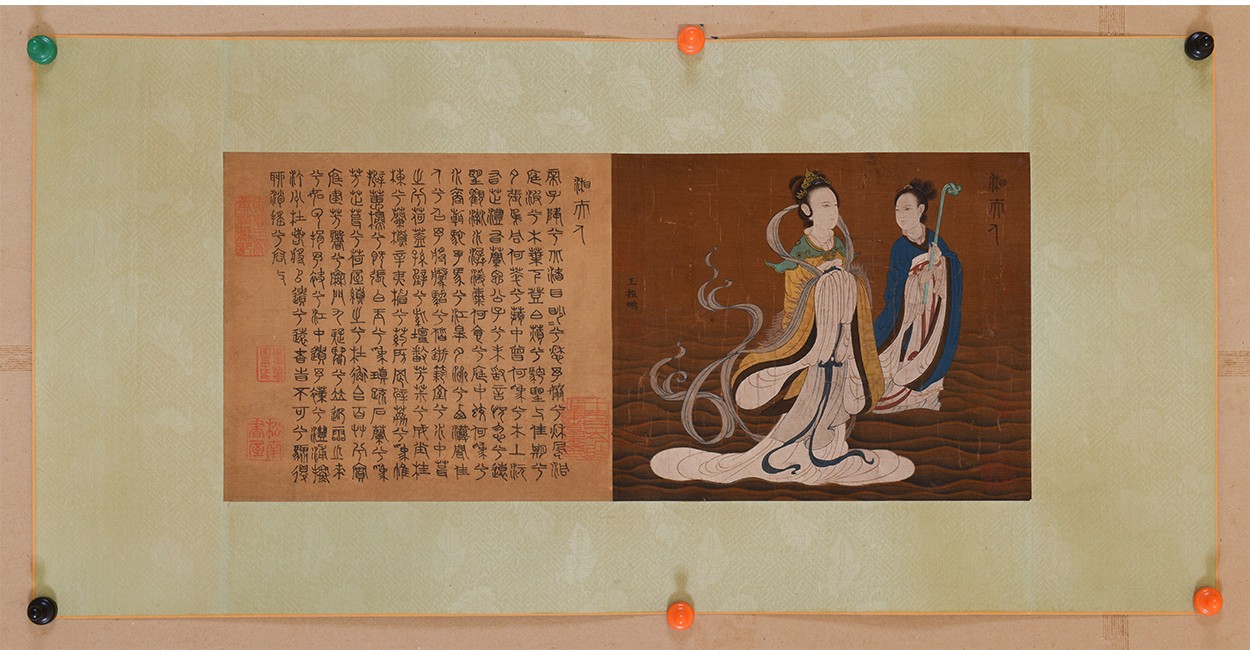 湘夫人
王振鵬
湘夫人
帝子降兮北渚目眇眇兮愁予嫋兮秋風洞
庭波兮木葉下登白薠兮騁望与佳期兮
夕張鳥何萃兮蘋中罾何為兮木上沅
有芷澧有蘭思公子兮未敢言怳忽兮遠
望觀流水潺湲麋何食兮庭中蛟何為兮
水裔朝馳予馬兮江皋夕濟兮西澨聞佳
人兮召予將騰駕兮偕逝築室兮水中葺
之兮荷蓋蓀壁兮紫壇播芳椒兮成堂桂
棟兮蘭橑辛夷楣兮葯房罔薜荔兮為帷
擗蕙櫋兮既張白玉兮為鎮疏石蘭兮為
芳芷葺兮荷屋繚之兮杜衡合百草兮實
庭建芳馨兮廡門九疑繽兮並迎靈之來
兮如雲捐予袂兮江中遺予褋兮澧浦搴
汀洲杜若將以遺兮遠者時不可兮驟得
聊逍遙兮容与